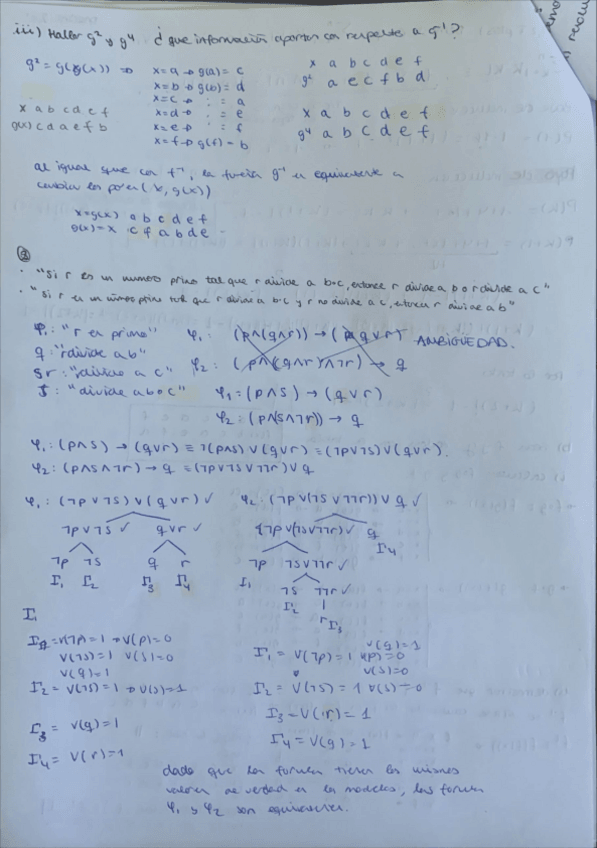 iii) Hallar g² y g⁴ ¿que información aportan con respecto a g⁻¹?
g² = g(g(x)) ⇒ x=a → g(a) = c
x=b → g(b) = d
x=c → : = a
x=d → : = e
x=e → : = f
x=f → g(f) = b
x a b c d e f
g(x) c d a e f b
x a b c d e f
g² a e c f b d
x a b c d e f
g⁴ a b c d e f
al igual que con f⁻¹, la función g⁻¹ es equivalente a
cambiar los pares (x, g(x))
x=g(x) a b c d e f
g(x)=x c f a b d e
· "Si r es un numero primo tal que r divide a b·c, entonces r divide a b o r divide a c"
· "Si r es un número primo tal que r divide a b·c y r no divide a c, entonces r divide a b"
p: "r es primo"
q: "r divide a b"
r: "divide a c"
s: "divide a b·c"
φ₁: (p∧(q∧r)) → (p q∨r) AMBIGÜEDAD.
φ₂: (p∧(q∧r)∧¬r) → q
φ₁: (p∧s) → (q∨r)
φ₂: (p∧s∧¬r)) → q
φ₁: (p∧s) → (q∨r) ≡ ¬(p∧s)∨(q∨r) ≡ (¬p∨¬s)∨(q∨r).
φ₂: (p∧s∧¬r) → q ≡ (¬p∨¬s∨¬¬r)∨q
φ₁: (¬p∨¬s)∨(q∨r) ✓
¬p∨¬s ✓ q∨r ✓
¬p ¬s q r
Γ₁ Γ₂ Γ₃ Γ₄
φ₂: (¬p∨(¬s∨¬¬r))∨q ✓
(¬p∨(¬s∨¬¬r)✓ q
Γ₄
¬p ¬s∨¬¬r ✓
Γ₁ ¬s ¬¬r ✓
Γ₂ |
r Γ₃
Γ₁ = v(¬p)=1 → v(p)=0
v(¬s)=1 v(s)=0
v(q)=1
Γ₂ = v(¬s)=1 → v(s)=1
Γ₃ = v(q)=1
Γ₄ = v(r)=1
v(q)=1
Γ₁ = v(¬p)=1 v(p)=0
v(s)=0
Γ₂ = v(¬s)=1 v(s)=0
Γ₃ = v(r)=1
Γ₄ = v(q)=1
dado que las formulas tienen los mismos
valores de verdad en los modelos, las formulas
φ₁ y φ₂ son equivalentes.